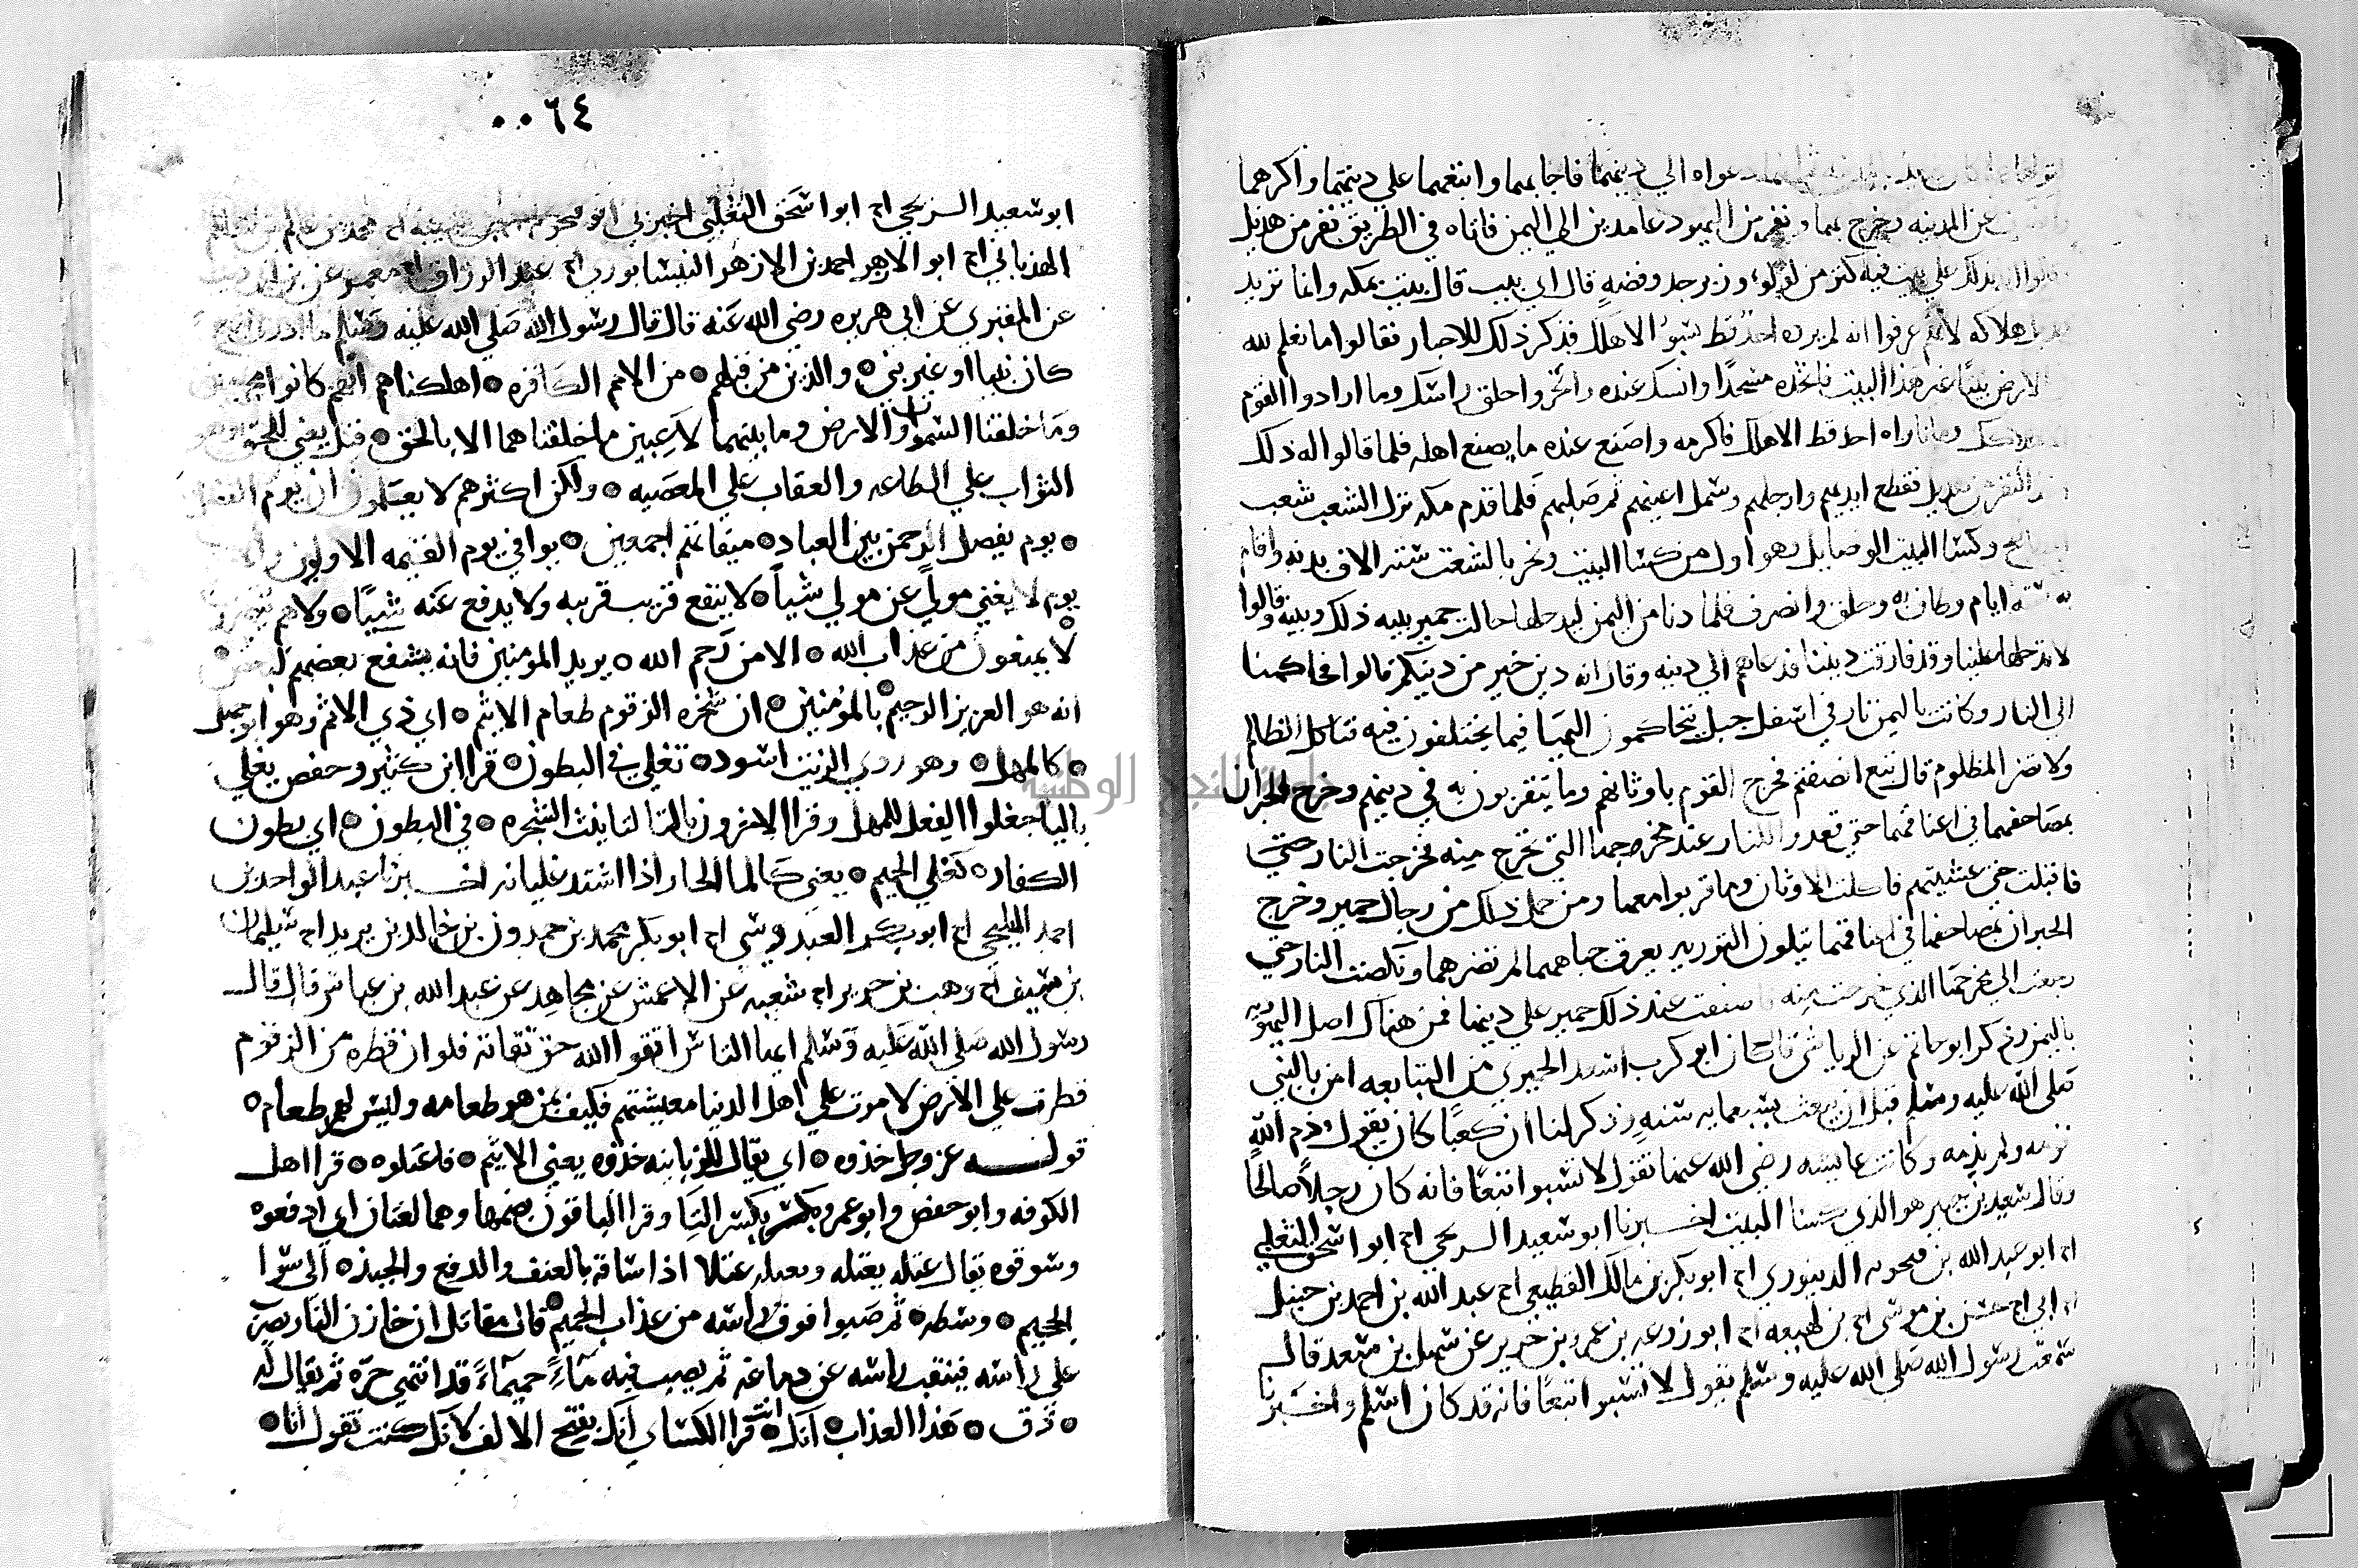 دعواه الي دينهما فاجابهما واتبعهما علي دينهما واكرهما
عن المدينه وخرج بهما ونفر من اليهود عامدين الي اليمن فاتاه في الطريق نفر من هذيل
ندلك علي بيت فيه كنز من لولو وزبرجد وفضه قال اي بيت قال بيت بمكه وانما تريد
هلاكه لانهم عرفوا انه لم يرده احد قط بسوء الا هلك فذكر ذلك للاحبار فقالوا ما نعلم لله
الارض بيتا غير هذا البيت فاتخذه مسجدا وانسك عنده وانحر واحلق راسك وما ارادوا القوم
وما ناواه احد قط الا هلك فاكرمه واصنع عنده ما يصنع اهله فلما قالوا له ذلك
النفر من هذيل فقطع ايديهم وارجلهم وسمل اعينهم ثم صلبهم فلما قدم مكه نزل الشعب شعب
وكسا البيت الوصايل وهو اول من كسا البيت ونحر بالشعب سته الاف بدنه واقام
به سته ايام وطاف به وحلق وانصرف فلما دنا من اليمن ليدخلها حالت حمير بينه ذلك وبينه قالوا
لا تدخلها علينا وقد فارقت ديننا فدعاهم الي دينه وقال انه دين خير من دينكم قالوا فحاكمنا
الي النار وكانت باليمن نار في اسفل جبل يتحاكمون اليها فيما يختلفون فيه فتاكل الظالم
ولا تضر المظلوم قال تبع انصفتم فخرج القوم باوثانهم وما يتقربون به في دينهم وخرج الحبران
بمصاحفهما في اعناقهما حتي قعدوا للنار عند مخرجها التي تخرج منه فخرجت النار حتي
فاقبلت حتي غشيتهم فاكلت الاوثان وما قربوا معها ومن حمل ذلك من رجال حمير وخرج
الحبران بمصاحفهما في اعناقهما يتلون التوريه يعرق جباههما لم تضرهما ونكصت النار حتي
رجعت الي مخرجها الذي خرجت منه فاصفقت عند ذلك حمير علي دينهما فمن هناك اصل اليهوديه
باليمن وذكر ابو حاتم عن الرياشي قال كان ابو كرب اسعد الحميري من التبابعه امن بالنبي
صلي الله عليه وسلم قبل ان يبعث بسبعمايه سنه وذكر لنا ان كعبا كان يقول ذم الله
قومه ولم يذمه وكانت عايشه رضي الله عنها تقول لا تسبوا تبعا فانه كان رجلا صالحا
وقال سعيد بن جبير هو الذي كسا البيت اخبرنا ابو سعيد السريحي اح ابو اسحق الثعلبي
اح ابو عبد الله بن فنجويه الدينوري اح ابو بكر بن مالك القطيعي اح عبد الله بن احمد بن حنبل
اح ابي اح حسن بن موسي اح بن لهيعه اح ابو زرعه بن عمرو بن جرير عن سهل بن سعد قال
سمعت رسول الله صلي الله عليه وسلم يقول لا تسبوا تبعا فانه قد كان اسلم واخبرنا
٠٠٦٤
ابو سعيد السريحي اح ابو اسحق الثعلبي اخبرني
الهذباني اح ابو الازهر احمد بن الازهر النيسابوري اح عبد الرزاق اح معمر عن بن ابي ذيب
عن المقبري عن ابي هريره رضي الله عنه قال قال رسول الله صلي الله عليه وسلم ما ادري
كان نبيا او غير نبي ٥ والذين من قبلهم ٥ من الامم الكافره ٥ اهلكناهم انهم كانوا مجرمين
وما خلقنا السموات والارض وما بينهما لاعبين ما خلقناهما الا بالحق ٥ قيل يعني للحق وهو
الثواب علي الطاعه والعقاب علي المعصيه ٥ ولكن اكثرهم لا يعلمون ان يوم الفصل
٥ يوم يفصل الرحمن بين العباد ٥ ميقاتهم اجمعين ٥ يوافي يوم القيمه الاولون
يوم لا يغني مولي عن مولي شيا ٥ لا ينفع قريب قريبه ولا يدفع عنه شييا ٥ ولا هم ينصرون
لا يمنعون من عذاب الله ٥ الا من رحم الله ٥ يريد المومنين فانه يشفع بعضهم لبعض
انه هو العزيز الرحيم بالمومنين ٥ ان شجره الزقوم طعام الاثيم ٥ اي ذي الاثم وهو ابو جهل
٥ كالمهل ٥ وهو دردي الزيت اسود ٥ تغلي في البطون ٥ قرا ابن كثير وحفص يغلي
باليا جعلوا الفعل للمهل وقرا الاخرون بالتا لتانيث الشجره ٥ في البطون ٥ اي بطون
الكفار ٥ كغلي الحميم ٥ يعني كالما الحار اذا اشتد غليانه اخبرنا عبد الواحد بن
احمد المليحي اح ابو بكر العبدوسي اح ابو بكر محمد بن حمدون بن خالد بن يزيد اح سليمان
بن سيف اح وهب بن جرير اح شعبه عن الاعمش عن مجاهد عن عبد الله بن عباس قال قال
رسول الله صلي الله عليه وسلم ايها الناس اتقوا الله حق تقاته فلو ان قطره من الزقوم
قطرت علي الارض لامرت علي اهل الدنيا معيشتهم فكيف بمن هو طعامه وليس لهم طعام ٥
قوله عز وجل خذوه ٥ اي يقال للزبانيه خذوه يعني الاثيم ٥ فاعتلوه ٥ قرا اهل
الكوفه وابو حفص وابو عمرو بكسر التا وقرا الباقون بضمها وهما لغتان اي ادفعوه
وسوقوه يقال عتله يعتله ويعتله عتلا اذا ساقه بالعنف والدفع والجبذ ٥ الي سوا
الجحيم ٥ وسطه ٥ ثم صبوا فوق راسه من عذاب الحميم ٥ قال مقاتل ان خازن النار يضربه
علي راسه فينقب راسه عن دماغه ثم يصيب فيه ماء حميما قد انتهي حره ثم يقال له
٥ ذق ٥ هذا العذاب ٥ انك انت ٥ قرا الكساي انك بفتح الالف لانك كنت تقول انا ٥
جامعة النجاح الوطنية